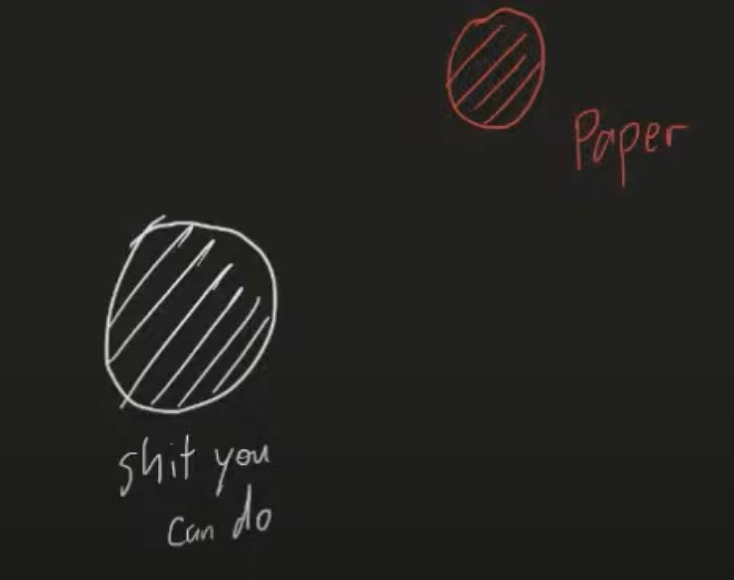 Paper
shit you
can do